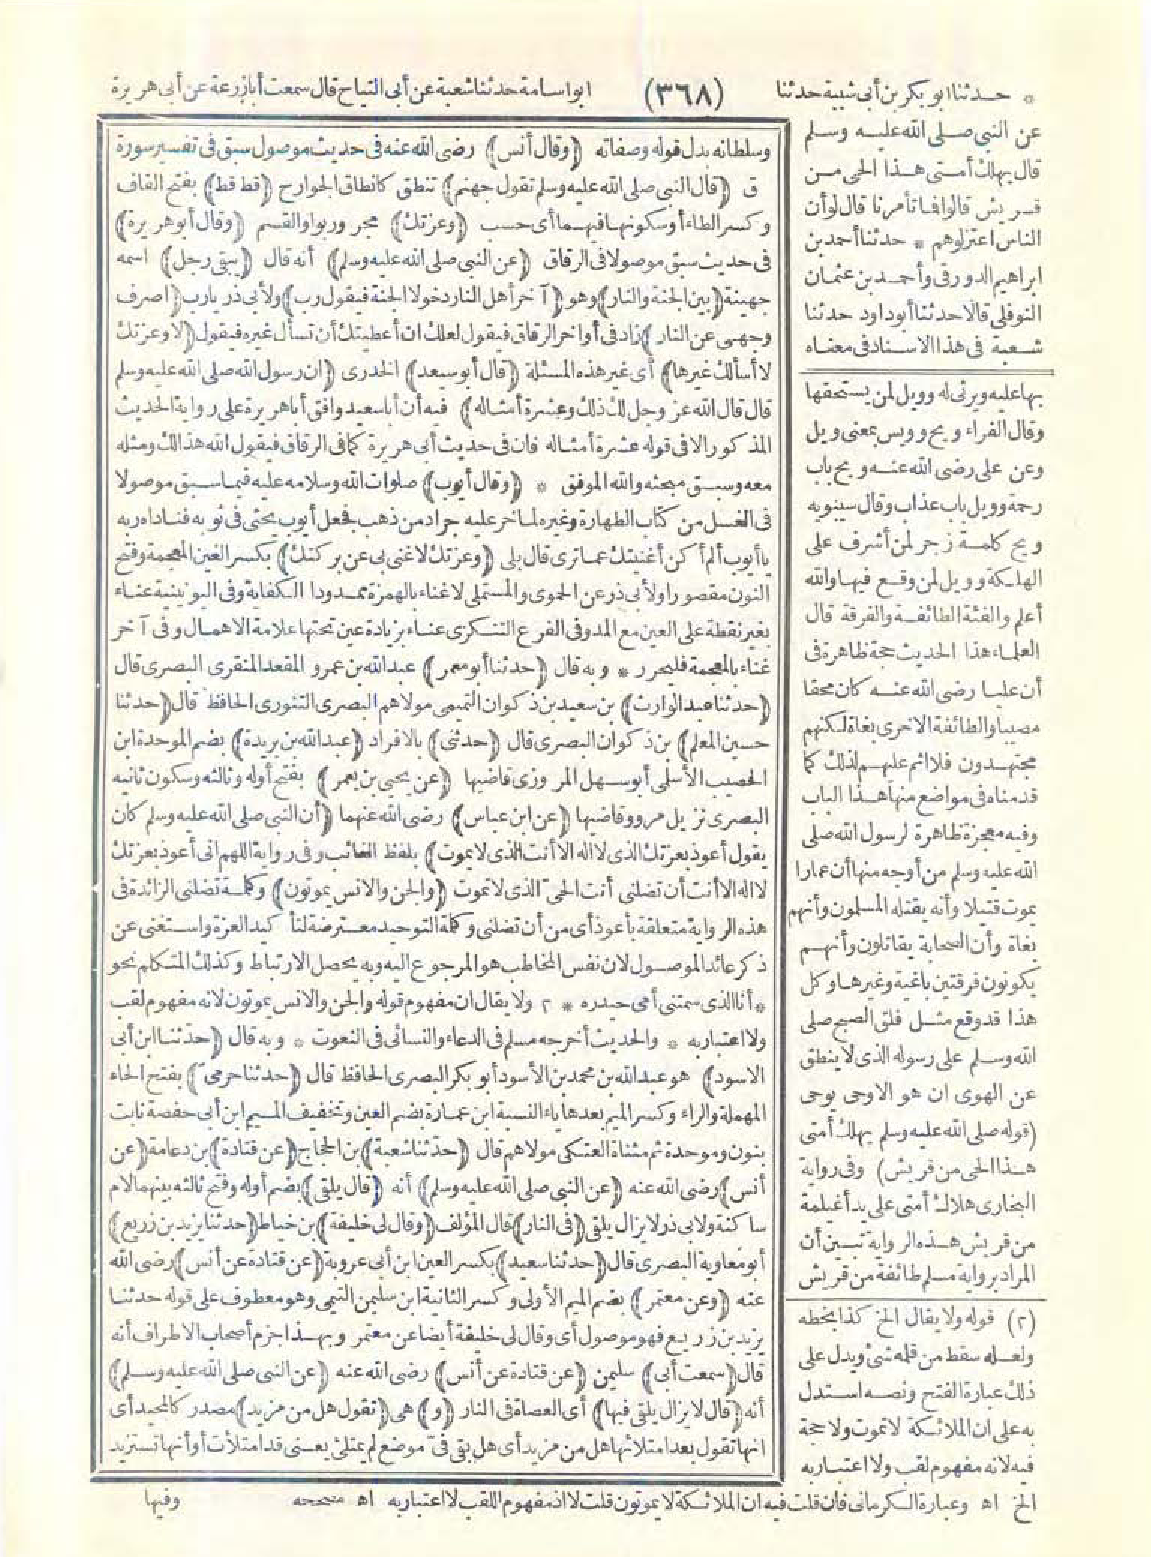 * حدثنا أبو بكر بن أبى شيبة حدثنا (٣٦٨) أبو أسامة حدثنا شعبة عن أبى التياح قال سمعت أبا زرعة عن أبى هريرة
عن النبى صلى الله عليه وسلم
قال يهلك أمتى هذا الحى من
قريش قالوا فما تأمرنا قال لو أن
الناس اعتزلوهم * حدثنا أحمد بن
ابراهيم الدورقى وأحمد بن عثمان
النوفلى قالا حدثنا أبو داود حدثنا
شعبة فى هذا الاسناد فى معناه
بها عليه ويرثى له وويل لمن يستحقها
وقال الفراء ويح وويس بمعنى ويل
وعن على رضى الله عنه ويح باب
رحمة وويل باب عذاب وقال سيبويه
ويح كلمة زجر لمن أشرف على
الهلكة وويل لمن وقع فيها والله
أعلم والفئة الطائفة والفرقة قال
العلماء هذا الحديث حجة ظاهرة فى
أن عليا رضى الله عنه كان محقا
مصيبا والطائفة الاخرى بغاة لكنهم
مجتهدون فلا اثم عليهم لذلك كما
قدمناه فى مواضع منها هذا الباب
وفيه معجزة ظاهرة لرسول الله صلى
الله عليه وسلم من أوجه منها أن عمارا
يموت قتيلا وأنه يقتله المسلمون وأنهم
بغاة وأن الصحابة يقاتلون وأنهم
يكونون فرقتين باغية وغيرها وكل
هذا قد وقع مثل فلق الصبح صلى
الله وسلم على رسوله الذى لا ينطق
عن الهوى ان هو الا وحى يوحى
(قوله صلى الله عليه وسلم يهلك أمتى
هذا الحى من قريش) وفى رواية
البخارى هلاك أمتى على يد أغيلمة
من قريش هذه الرواية تبين أن
المراد برواية مسلم طائفة من قريش
وسلطانه بدل قوله وصفاته (وقال أنس) رضى الله عنه فى حديث موصول سبق فى تفسير سورة
ق (قال النبى صلى الله عليه وسلم تقول جهنم) تنطق كانطاق الجوارح (قط قط) بفتح القاف
وكسر الطاء أو سكونها فيهما أى حسب (وعزتك) مجرور بواو القسم (وقال أبو هريرة)
فى حديث سبق موصولا فى الرقاق (عن النبى صلى الله عليه وسلم) أنه قال (يبقى رجل) اسمه
جهينة (بين الجنة والنار) وهو (آخر أهل النار دخولا الجنة فيقول رب) ولأبى ذر يا رب (اصرف
وجهى عن النار) زاد فى أواخر الرقاق فيقول لعلك ان أعطيتك أن تسأل غيره فيقول (لا وعزتك
لا أسألك غيرها) أى غير هذه المسئلة (قال أبو سعيد) الخدرى (ان رسول الله صلى الله عليه وسلم
قال قال الله عز وجل لك ذلك وعشرة أمثاله) فيه أن أبا سعيد وافق أبا هريرة على رواية الحديث
المذكور الا فى قوله عشرة أمثاله فان فى حديث أبى هريرة كما فى الرقاق فيقول الله هذا لك ومثله
معه وسبق مبحثه والله الموفق * (وقال أيوب) صلوات الله وسلامه عليه فيما سبق موصولا
فى الغسل من كتاب الطهارة وغيره لما خر عليه جراد من ذهب فجعل أيوب يحثى فى ثوبه فناداه ربه
يا أيوب ألم أكن أغنيتك عما ترى قال بلى (وعزتك لا غنى لى عن بركتك) بكسر الغين المعجمة وفتح
النون مقصورا ولأبى ذر عن الحموى والمستملى لا غناء بالهمزة ممدودا الكفاية وفى اليونينية عناء
بغير نقطة على العين مع المد وفى الفرع التنكزى عناء بزيادة عين تحتها علامة الاهمال وفى آخر
غناء بالمعجمة فليحرر * وبه قال (حدثنا أبو معمر) عبد الله بن عمرو المقعد المنقرى البصرى قال
(حدثنا عبد الوارث) بن سعيد بن ذكوان التميمى مولاهم البصرى التنورى الحافظ قال (حدثنا
حسين المعلم) بن ذكوان البصرى قال (حدثنى) بالافراد (عبد الله بن بريدة) بضم الموحدة ابن
الحصيب الأسلمى أبو سهل المروزى قاضيها (عن يحيى بن يعمر) بفتح أوله وثالثه وسكون ثانيه
البصرى نزيل مرو وقاضيها (عن ابن عباس) رضى الله عنهما (أن النبى صلى الله عليه وسلم كان
يقول أعوذ بعزتك الذى لا اله الا أنت الذى لا يموت) بلفظ الغائب وفى رواية اللهم انى أعوذ بعزتك
لا اله الا أنت أن تضلنى أنت الحىّ الذى لا تموت (والجن والانس يموتون) وكلمة تضلنى الزائدة فى
هذه الرواية متعلقة بأعوذ أى من أن تضلنى وكلمة التوحيد معترضة لتأكيد العزة واستغنى عن
ذكر عائد الموصول لان نفس المخاطب هو المرجوع اليه وبه يحصل الارتباط وكذلك المتكلم نحو
* أنا الذى سمتنى أمى حيدره * ٢ ولا يقال ان مفهوم قوله والجن والانس يموتون لانه مفهوم لقب
ولا اعتبار به * والحديث أخرجه مسلم فى الدعاء والنسائى فى النعوت * وبه قال (حدثنا ابن أبى
الاسود) هو عبد الله بن محمد بن الأسود أبو بكر البصرى الحافظ قال (حدثنا حرمىّ) بفتح الحاء
المهملة والراء وكسر الميم بعدها ياء النسبة ابن عمارة بضم العين وتخفيف الميم ابن أبى حفصة نابت
بنون وموحدة ثم مثناة العتكى مولاهم قال (حدثنا شعبة) بن الحجاج (عن قتادة) بن دعامة (عن
أنس) رضى الله عنه (عن النبى صلى الله عليه وسلم) أنه (قال يلقى) بضم أوله وفتح ثالثه بينهما لام
ساكنة ولابى ذر لا يزال يلقى (فى النار) قال المؤلف (وقال لى خليفة) بن خياط (حدثنا يزيد بن زريع)
أبو معاوية البصرى قال (حدثنا سعيد) بكسر العين ابن أبى عروبة (عن قتادة عن أنس) رضى الله
عنه (وعن معتمر) بضم الميم الأولى وكسر الثانية ابن سليمن التيمى وهو معطوف على قوله حدثنا
يزيد بن زريع فهو موصول أى وقال لى خليفة أيضا عن معتمر وبهذا جزم أصحاب الاطراف أنه
قال (سمعت أبى) سليمن (عن قتادة عن أنس) رضى الله عنه (عن النبى صلى الله عليه وسلم)
أنه (قال لا يزال يلقى فيها) أى العصاة فى النار (و) هى (تقول هل من مزيد) مصدر كالمجيد أى
انها تقول بعد امتلائها هل من مزيد أى هل بقى فىّ موضع لم يمتلئ يعنى قد امتلأت أو أنها تستزيد
(٢) قوله ولا يقال الخ كذا بخطه
ولعله سقط من قلمه شئ ويدل على
ذلك عبارة الفتح ونصه استدل
به على ان الملائكة لا تموت ولا حجة
فيه لانه مفهوم لقب ولا اعتبار به
الخ اه وعبارة الكرمانى فان قلت فيه ان الملائكة لا يموتون قلت لا اذ مفهوم اللقب لا اعتبار به اه مصححه
وفيها